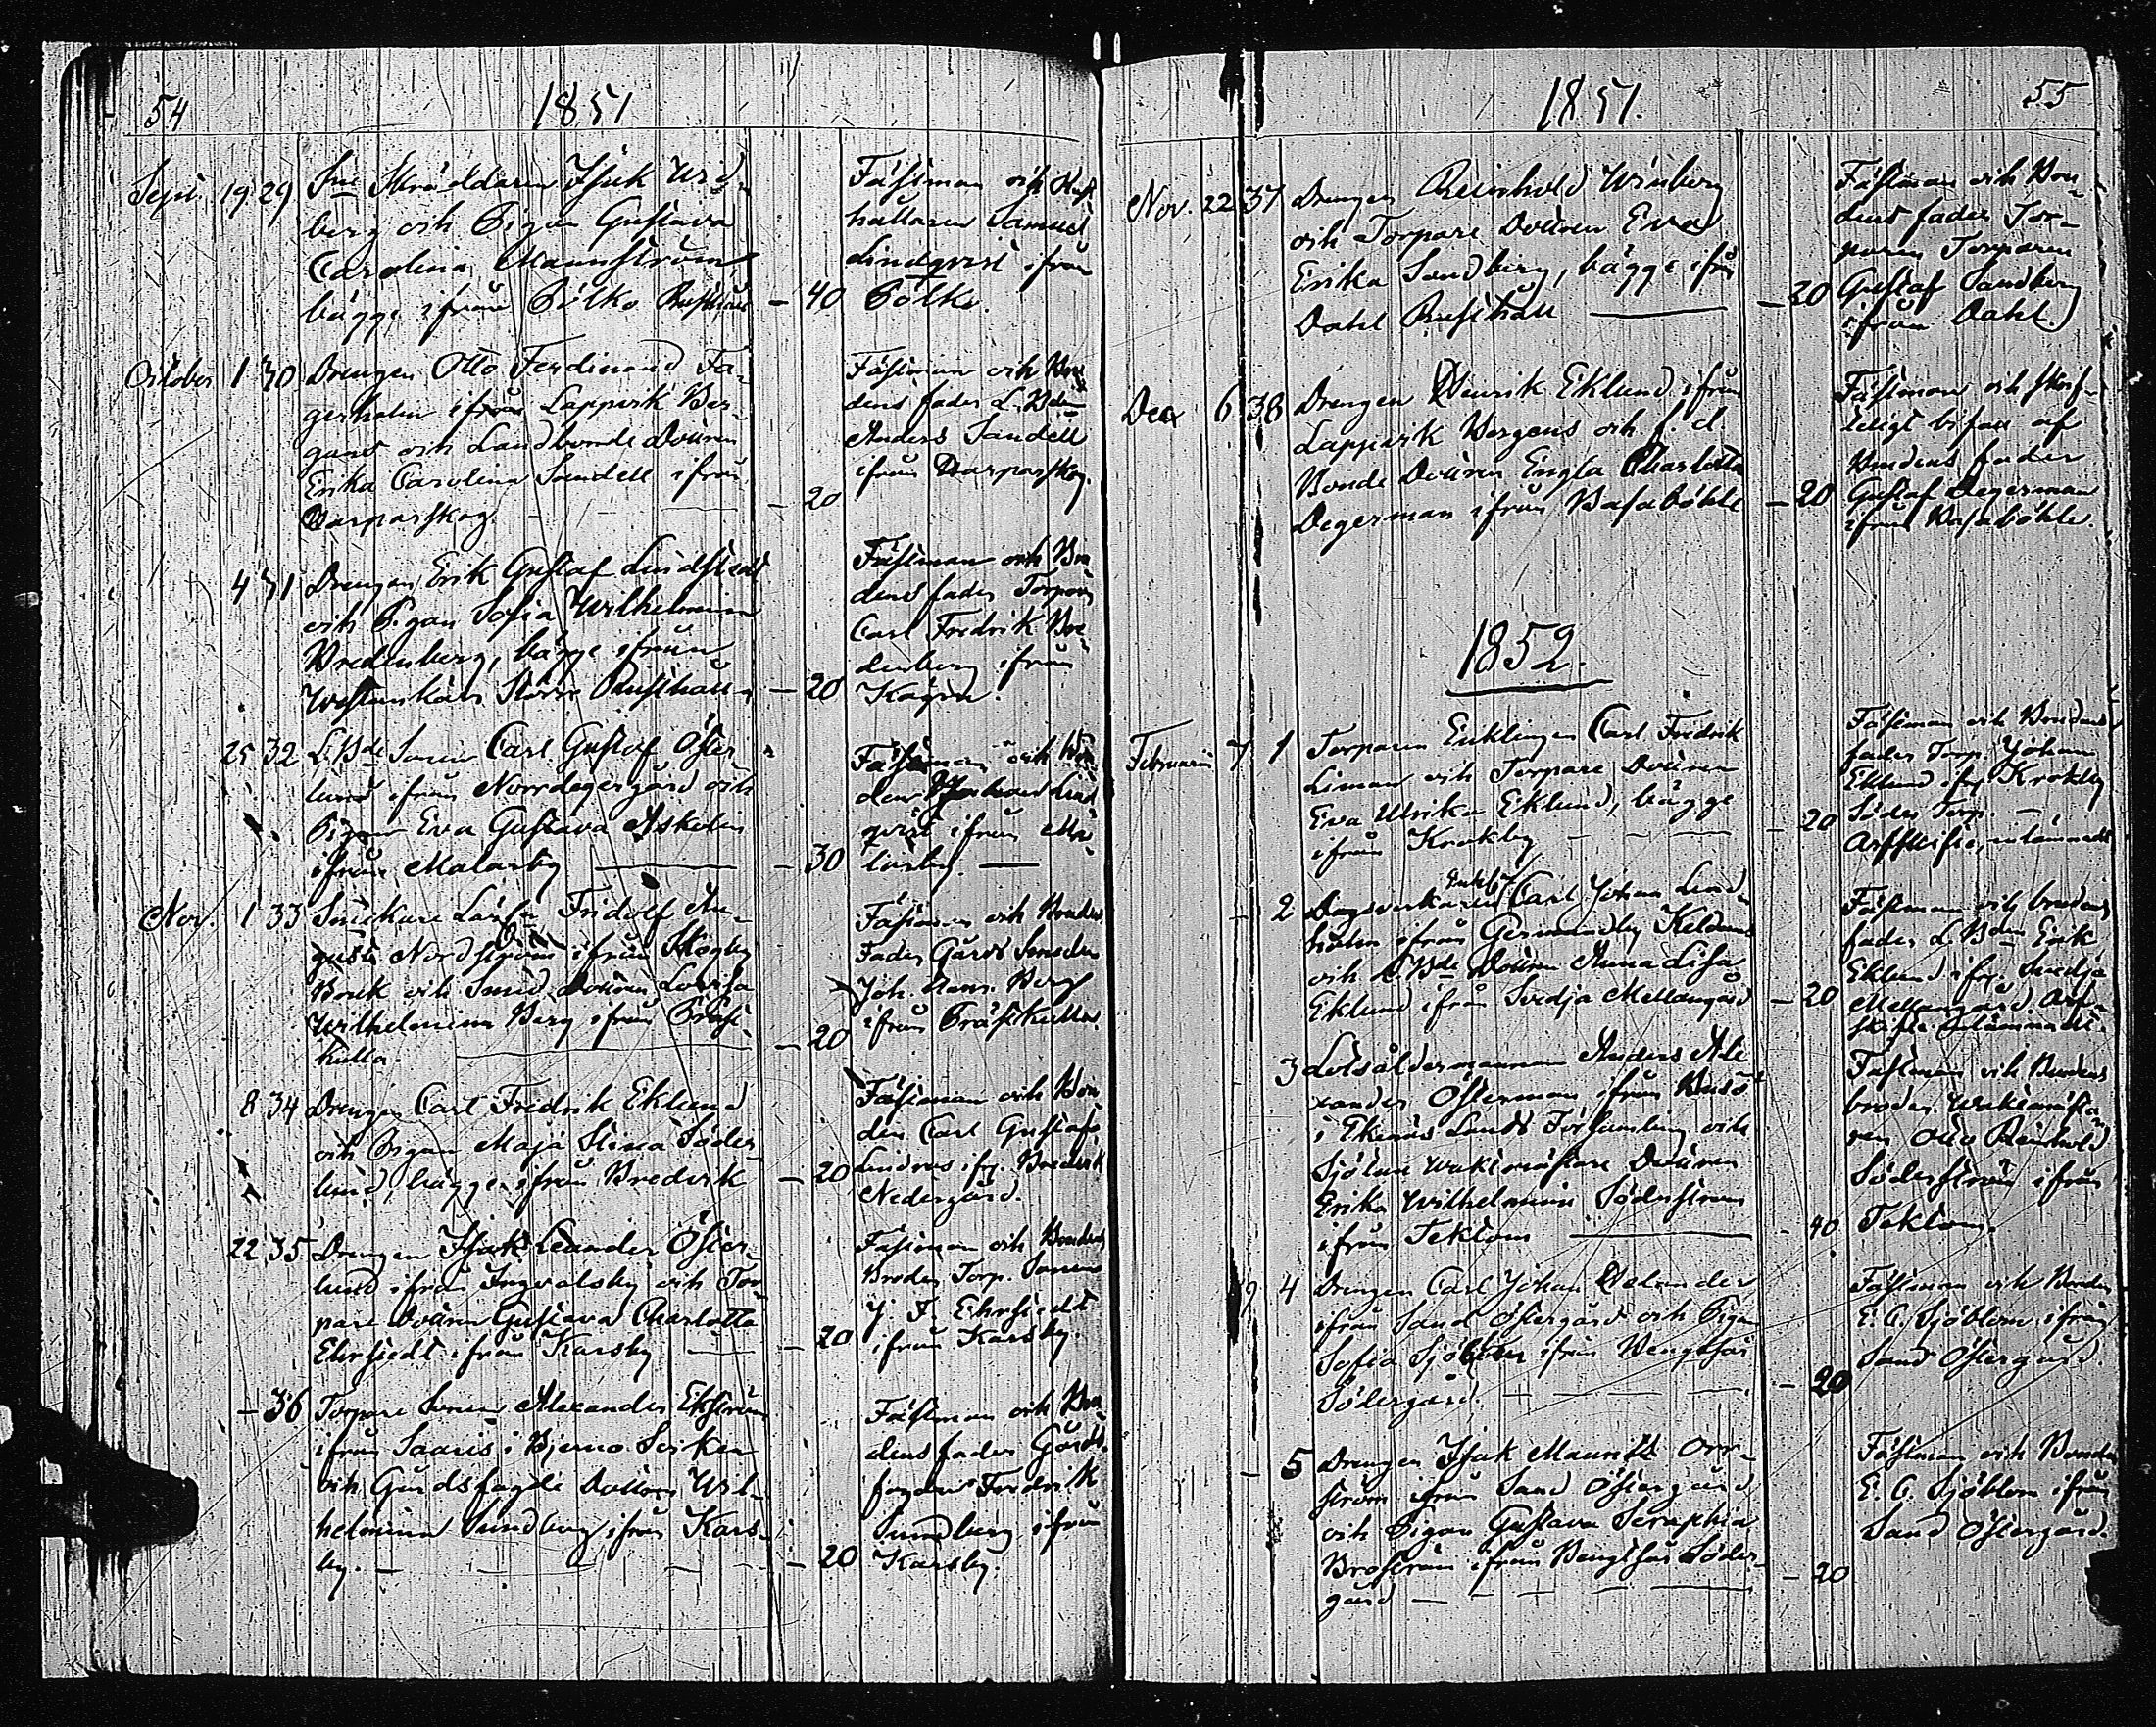 54 1851
Sept. 19 29 Skräddaren Isak Wid-
berg och Pigan Gustava
Carolina Mannström,
bägge ifrån Böle Rusthåll – 40
Fästman och Rust-
hållaren Samuel
Lindqvist ifrån
October 1 30 Drengen Otto Ferdinand Fa-
gerholm ifrån Lappvik Ber-
gans och Landbonde Dottren
Erika Carolina Sandell ifrån
Harparskog – 20
Fästman och Bru-
dens fader L. Bden
Anders Sandell
ifrån Harparskog.
4 31 Drengen Erik Gustaf Lindstedt
och Pigan Sofia Wilhelmina
Bredenberg, bägge ifrån
Westankärr Storre Rusthåll – 20
Fästman och Bru-
dens fader Torparen
Carl Fredrik Bre-
denberg ifrån
25 32 L. Bde Sonen Carl Gustaf Öster-
lund ifrån Norrdegergård och
Pigan Eva Gustava Askolin
ifrån Malarby – 30
Fästman och
qvist ifrån Ma-
larby. –
Nov. 1 33 Snickare Fridolf Au-
gust Nordström ifrån Skogby
Bruk och Smed Dottren Lovisa
Wilhelmina Berg ifrån Präst-
kulla. – 20
Fästman och Brudens
Fader Gårds Smeden
Joh. Berg
ifrån Prästkulla.
8 34 Drengen Carl Fredrik Eklund
och Pigan Maja Stina Söder-
lund, bägge ifrån Bredvik – 20
Fästman och Bon-
den Carl Gustafs
Lindroos ifr. Bredvik
Nedergård.
22 35 Drengen Isak Leander Öster-
lund ifrån Ingvalsby och Tor-
pare Dottren Gustava Charlotta
Ehrstedt ifrån Karsby – 20
Fästman och Brudens
Broder Torp. Sonen
J. F. Ehrstedt
ifrån Karsby.
– 36 Torpare Sonen Alexander Ekström
ifrån Saaris i Bjerno Socken
och Gårdsfogde Dottren Wil-
helmina Sundberg ifrån Kars-
by. – 20
Fästman och Bru-
dens fader Gårds-
fogden Fredrik
Sundberg ifrån
Karsby.
1851. 55
Nov. 22 37 Drengen Reinhold Winberg
och Torpare Dottren Eva
Erika Sandberg, bägge ifrån
Dahl Rusthåll – 20
Fästman och Bru-
dens fader Tor-
paren Torparen
Gustaf Sandberg
ifrån Dahl.
Dec. 6 38 Drengen Henrik Eklund ifrån
Lappvik Bergens och f. d.
Bonde Dottren Engla Charlotta
Degerman ifrån Basaböhle – 20
Fästman och skrif-
teligt bifall af
Brudens fader
Gustaf Degerman
ifrån Basaböhle.
1852.
Februari 7 1 Torparen Enklingen Carl Fredrik
Liman och Torpare Dottren
Eva Ulrika Eklund, bägge
ifrån Krokby – 20
Fästman och Brudens
fader Torp. Johan
Eklund ifr. Krokby
Söder Torp. –
Arfskifte, inlämnadt
– 2 Dagsverkaren Enkl. Carl Johan Lind-
holm ifrån Germundby
och L. Bde Dottren Anna Lisa
Eklund ifrån Svedja Mellangård – 20
Fästman och brudens
fader L. Bden Erik
Eklund ifr. Svedja
Mellangård. Arf-
skifte inlämnadt.
3 Lotsåldermannen Anders Ale-
xander Österman ifrån Busö
i Ekenäs Lands Församling och
Sjötull Waktmästare Dottren
Erika Wilhelmina Söderström
ifrån Tektom – 40
Fästman och Brudens
broder Waktmästa-
ren Otto Reinhold
Söderström ifrån
Tektom.
4 Drengen Carl Johan Helander
ifrån Sand Östergård och Pigan
Sofia Sjöblom ifrån Bengtsår
Södergård. – 20
Fästman och Bonden
E. G. Sjöblom ifrån
Sand Östergård.
– 5 Drengen Isak Mauritz Orr-
ström ifrån Sand Östergård
och Pigan Gustava Seraphia
Broström ifrån Bengtsår Söder-
gård – 20
Fästman och Bonden
E. G. Sjöblom ifrån
Sand Östergård.